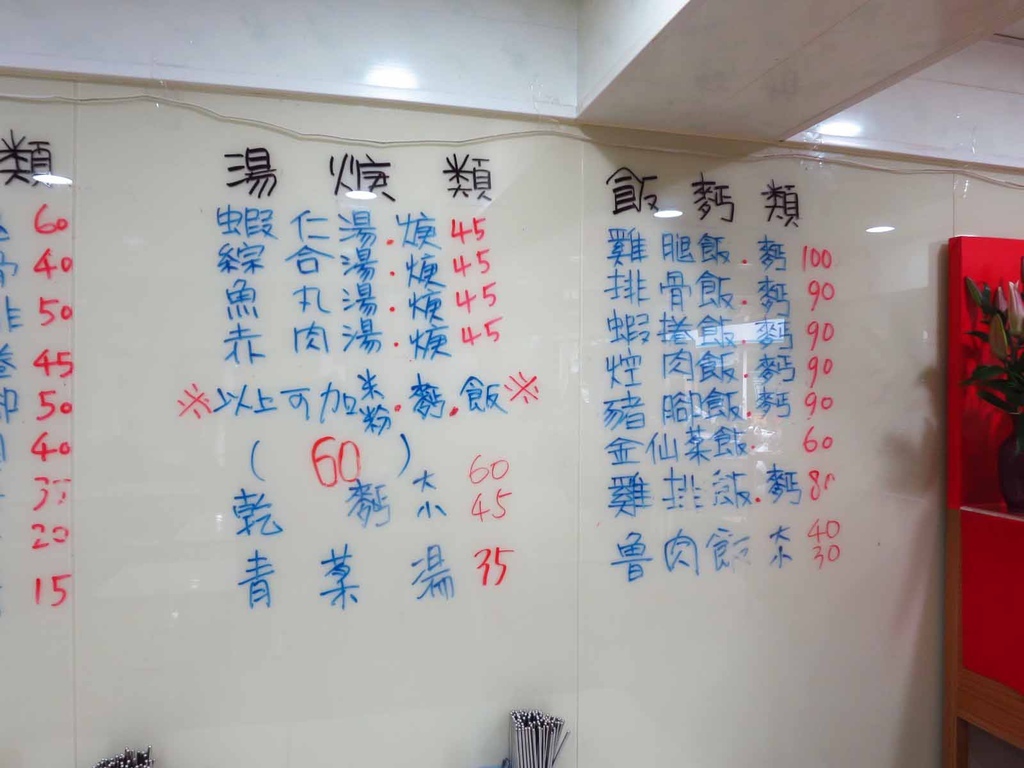 類
60
40
50
45
50
40
20
15
湯焿類
蝦仁湯.焿 45
綜合湯.焿 45
魚丸湯.焿 45
赤肉湯.焿 45
※以上可加米粉.麵.飯※
(60)
乾麵 大 60
小 45
青菜湯 35
飯麵類
雞腿飯.麵 100
排骨飯.麵 90
蝦捲飯.麵 90
焢肉飯.麵 90
豬腳飯.麵 90
金仙菜飯. 60
雞排飯.麵 80
魯肉飯 大 40
小 30